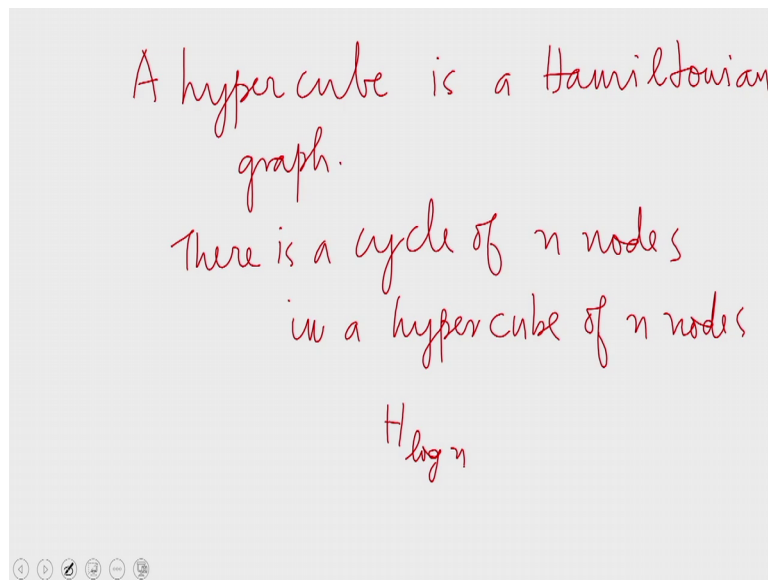 A hypercube is a Hamiltonian
graph.
There is a cycle of n nodes
in a hypercube of n nodes
H log n